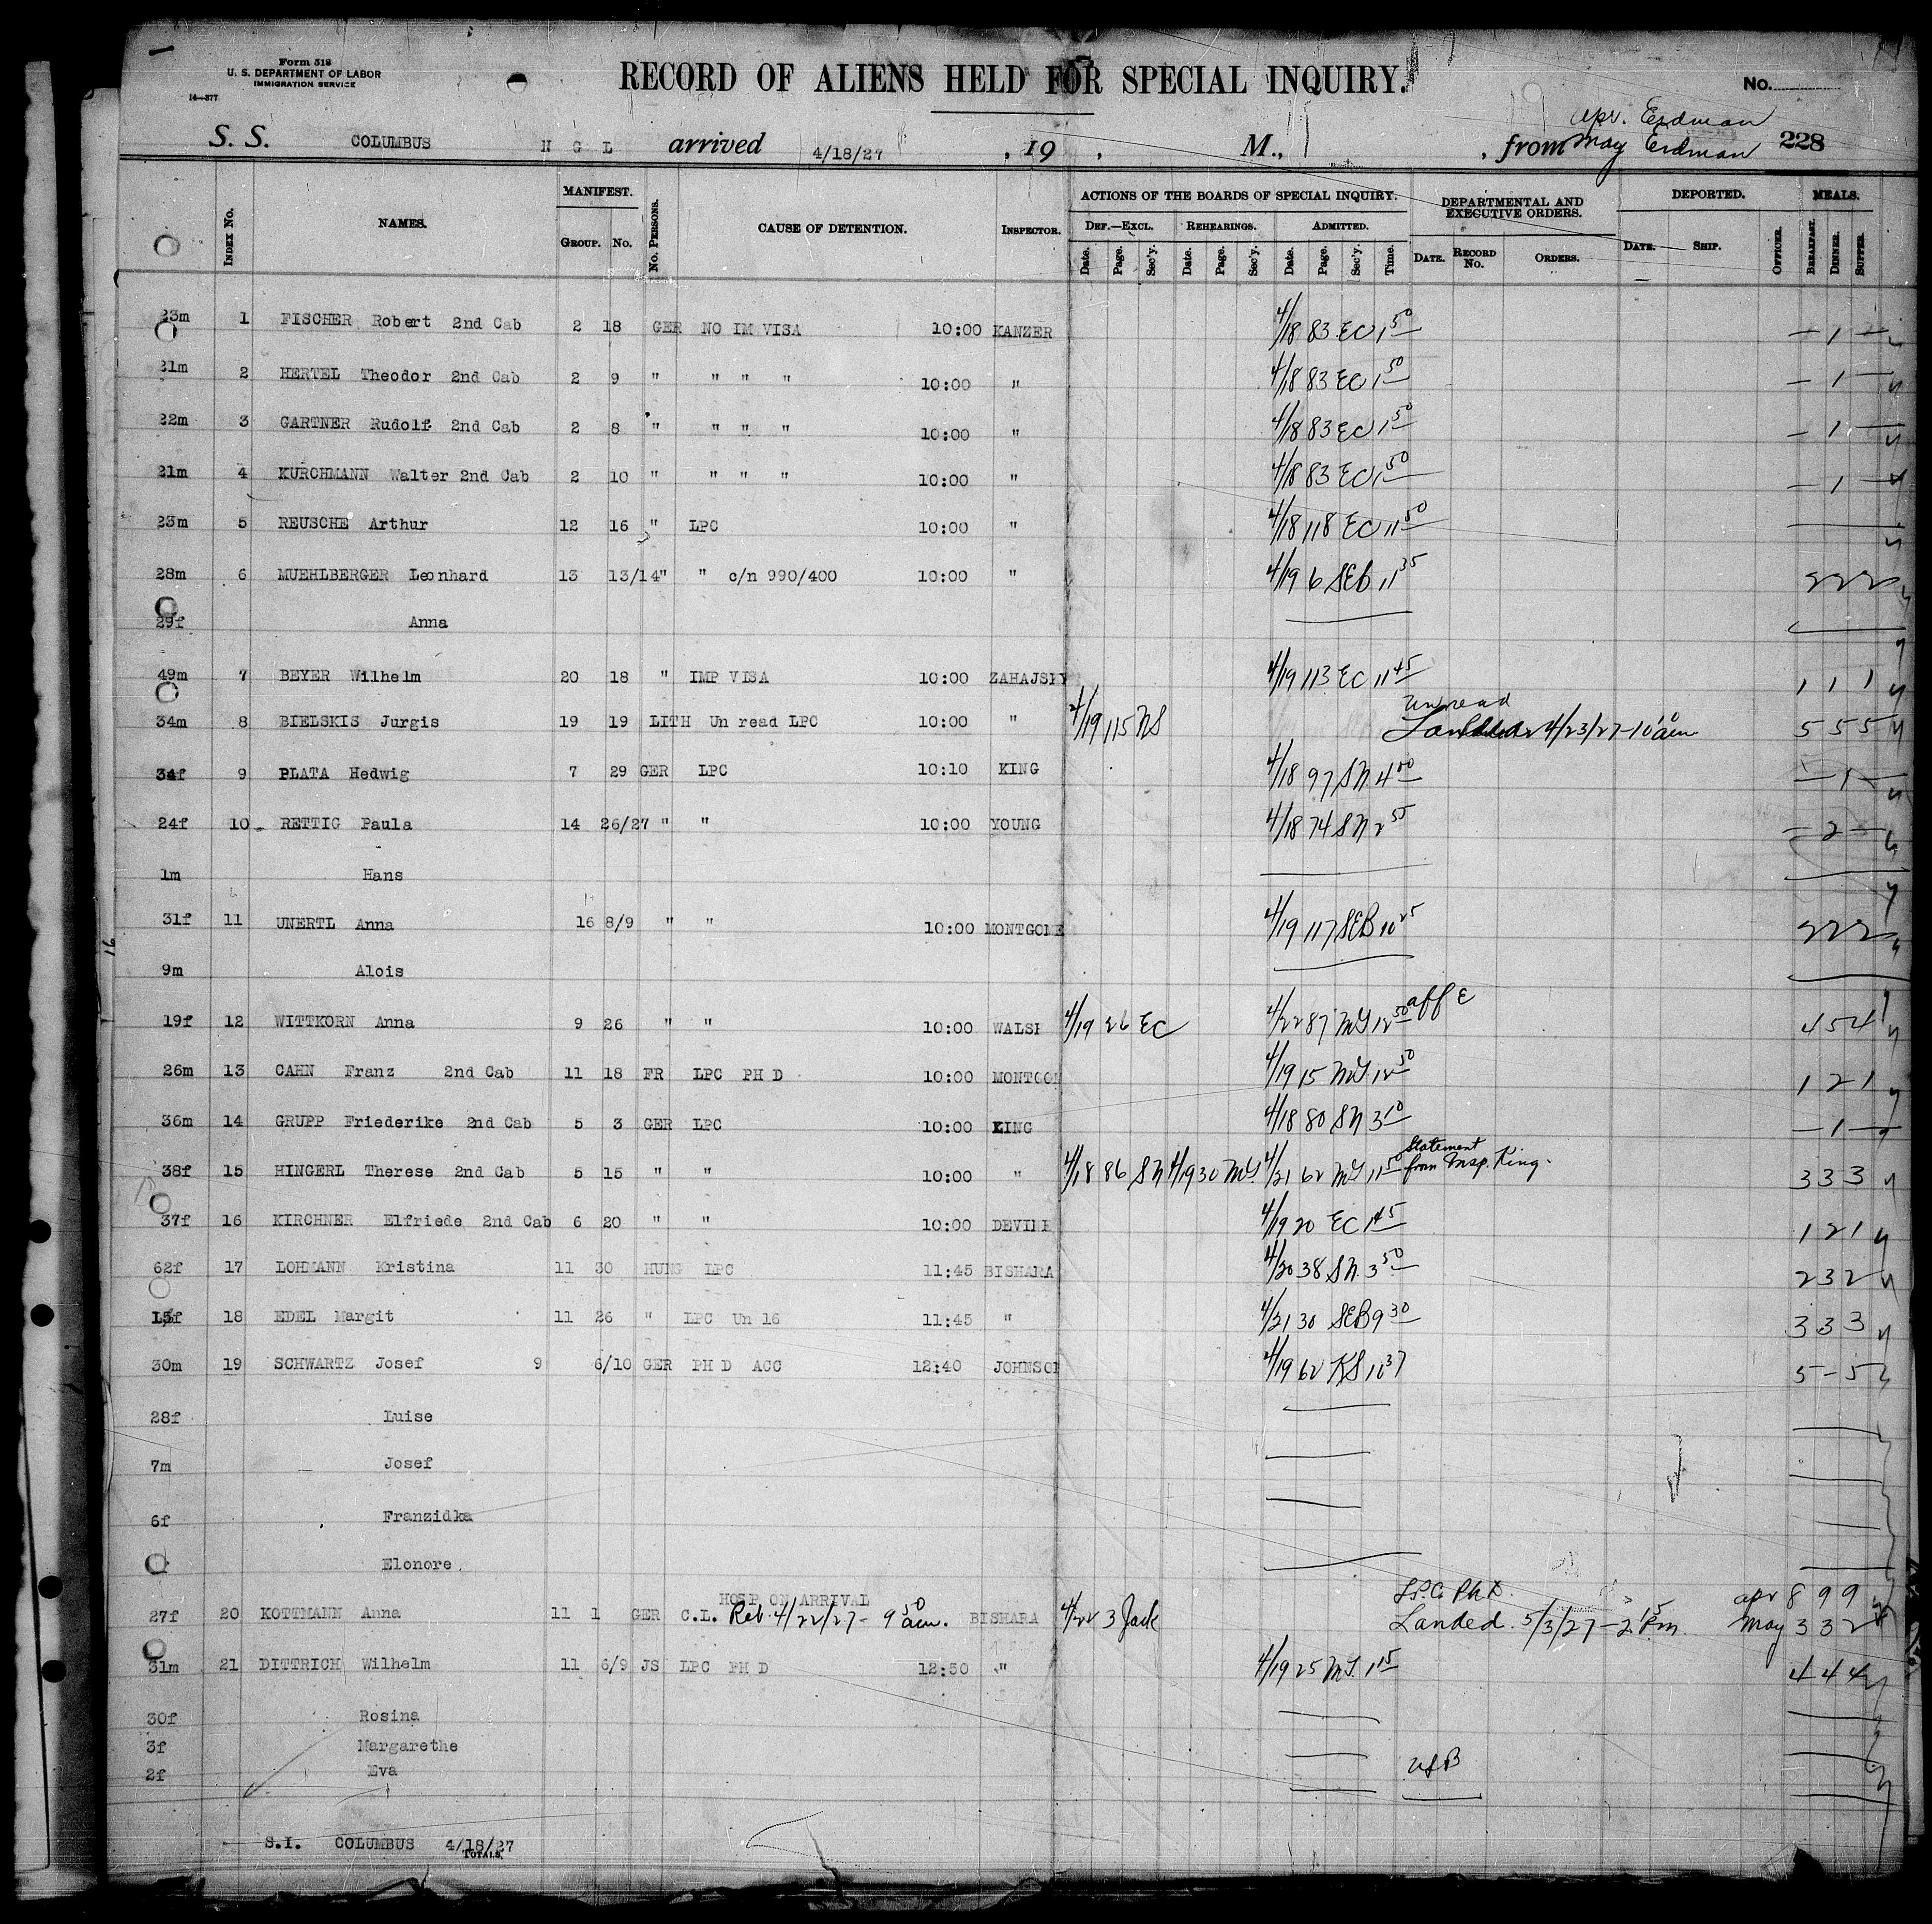 Form 518
U. S. DEPARTMENT OF LABOR
IMMIGRATION SERVICE
14—377
RECORD OF ALIENS HELD FOR SPECIAL INQUIRY.
No.
S. S. COLUMBUS N G L arrived 4/18/27 , 19 , M., , from
Apr. Erdman
May Erdman 228
INDEX No. NAMES. MANIFEST. GROUP. No. No. PERSONS. CAUSE OF DETENTION. INSPECTOR. ACTIONS OF THE BOARDS OF SPECIAL INQUIRY. DEPARTMENTAL AND EXECUTIVE ORDERS. DEPORTED. MEALS.
DEF.—EXCL. REHEARINGS. ADMITTED.
Date. Page. Sec'y. Date. Page. Sec'y. Date. Page. Sec'y. Time. DATE. RECORD No. ORDERS. DATE. SHIP. OFFICER. BREAKFAST. DINNER. SUPPER.
23m 1 FISCHER Robert 2nd Cab 2 18 GER NO IM VISA 10:00 KANZER 4/18 83 EC 1 50 — 1 —
21m 2 HERTEL Theodor 2nd Cab 2 9 " " " " 10:00 " 4/18 83 EC 1 50 — 1 —
22m 3 GARTNER Rudolf 2nd Cab 2 8 " " " " 10:00 " 4/18 83 EC 1 50 — 1 —
21m 4 KURCHMANN Walter 2nd Cab 2 10 " " " " 10:00 " 4/18 83 EC 1 50 — 1 —
23m 5 REUSCHE Arthur 12 16 " LPC 10:00 " 4/18 118 EC 11 50
28m 6 MUEHLBERGER Leonhard 13 13/14 " " c/n 990/400 10:00 " 4/19 6 SEB 11 35 2 2 2
29f Anna
49m 7 BEYER Wilhelm 20 18 " IMP VISA 10:00 ZAHAJSKY 4/19 113 EC 11 45 1 1 1
34m 8 BIELSKIS Jurgis 19 19 LITH Un read LPC 10:00 " 4/19 115 NS Unread
Landed 4/23/27 - 10 10 am 5 5 5
34f 9 PLATA Hedwig 7 29 GER LPC 10:10 KING 4/18 97 SN 4 00 — 1 —
24f 10 RETTIG Paula 14 26/27 " " 10:00 YOUNG 4/18 74 SN 2 55 — 2 —
1m Hans
31f 11 UNERTL Anna 16 8/9 " " 10:00 MONTGOME 4/19 117 SEB 10 25 2 2 2
9m Alois
19f 12 WITTKORN Anna 9 26 " " 10:00 WALSH 4/19 26 EC 4/22 87 MY 12 50 aff E 4 5 4
26m 13 CAHN Franz 2nd Cab 11 18 FR LPC PH D 10:00 MONTGOM 4/19 15 MY 12 50 1 2 1
36m 14 GRUPP Friederike 2nd Cab 5 3 GER LPC 10:00 KING 4/18 80 SN 3 10 — 1 —
38f 15 HINGERL Therese 2nd Cab 5 15 " " 10:00 " 4/18 86 SN 4/19 30 MY 4/21 62 MY 11 50 Statement
from Insp. King. 3 3 3
37f 16 KIRCHNER Elfriede 2nd Cab 6 20 " " 10:00 DEVINE 4/19 20 EC 1 45 1 2 1
62f 17 LOHMANN Kristina 11 30 HUNG LPC 11:45 BISHARA 4/20 38 SN 3 50 2 3 2
15f 18 EDEL Margit 11 26 " LPC Un 16 11:45 " 4/21 30 SEB 9 30 3 3 3
30m 19 SCHWARTZ Josef 9 6/10 GER PH D ACC 12:40 JOHNSON 4/19 62 KS 10 37 5 - 5
28f Luise
7m Josef
6f Franzidka
Elonore
HOSP ON ARRIVAL
27f 20 KOTTMANN Anna 11 1 GER C.L. Reb. 4/22/27 - 9 50 am. BISHARA 4/22 3 Jack LPC Ph D.
Landed 5/3/27 - 2 15 Pm. Apr 8 9 9
May 3 3 2
31m 21 DITTRICH Wilhelm 11 6/9 JS LPC PH D 12:50 " 4/19 25 MY 1 15 4 4 4
30f Rosina
3f Margarethe
2f Eva USB
S.I. COLUMBUS 4/18/27
TOTALS.